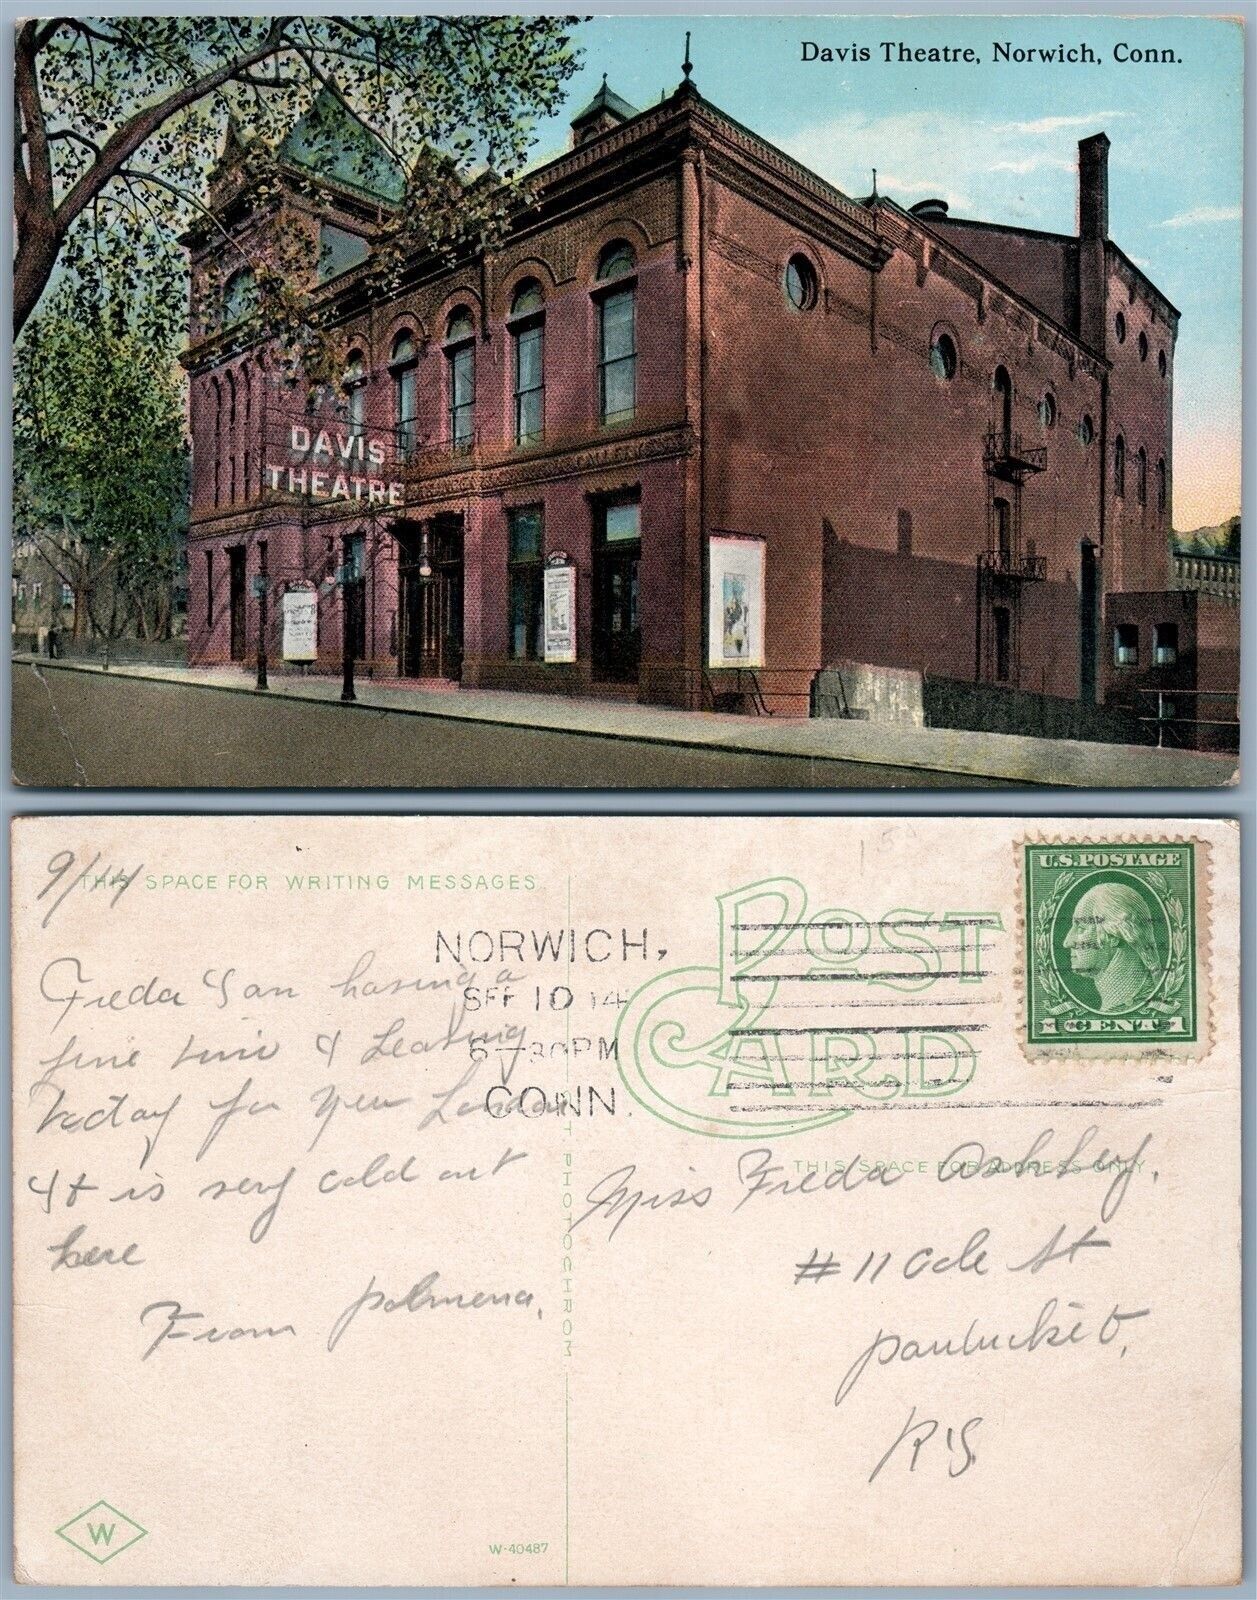 Davis Theatre, Norwich, Conn.
DAVIS
THEATRE
9/14
THIS SPACE FOR WRITING MESSAGES.
POST
CARD
U.S. POSTAGE
1 CENT 1
NORWICH,
SEP 10 14
6-30PM
CONN.
Freda I am having a
fine time & Leaving
today for New London
It is very cold out
here
From Palmena,
THIS SPACE FOR ADDRESS ONLY
Miss Freda Ashley,
#11 Cole St
Pawtucket,
RI
PHOTOCHROM
W
W-40487